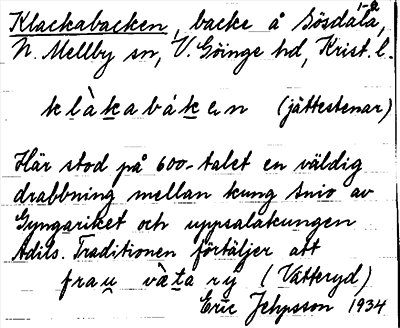 1-2
Klackabacken, backe å Sösdala,
N. Mellby sn, V. Göinge hd, Krist. l.
klàkabáken (jättestenar)
Här stod på 600-talet en väldig
drabbning mellan kung Snio av
Gyngariket och uppsalakungen
Adils. Traditionen förtäljer att
frau vàta rý (Vätteryd)
Eric Jehpsson 1934